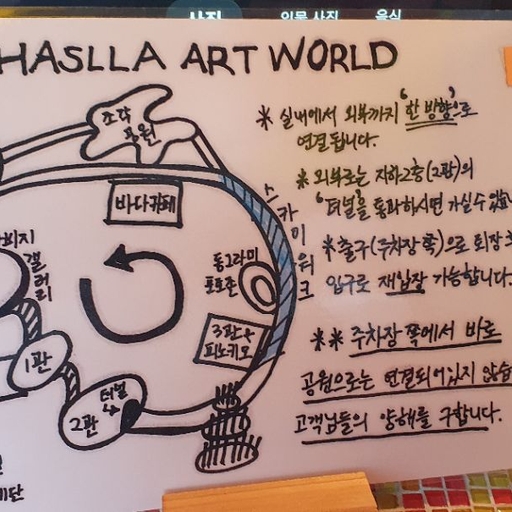 사진 인물 사진 음식
HASLLA ART WORLD
조각
공원
바다카페
스카이워크
동그라미
포토존
3관 &
피노키오
갤러리
1관
터널
2관
* 실내에서 외부까지 '한 방향'으로
연결됩니다.
* 외부로는 지하2층(2관)의
'터널'을 통과하시면 가실 수 있습
* 출구(주차장 쪽)으로 퇴장
입구로 재입장 가능합니다.
** 주차장 쪽에서 바로
공원으로는 연결되어있지 않습
고객님들의 양해를 구합니다.